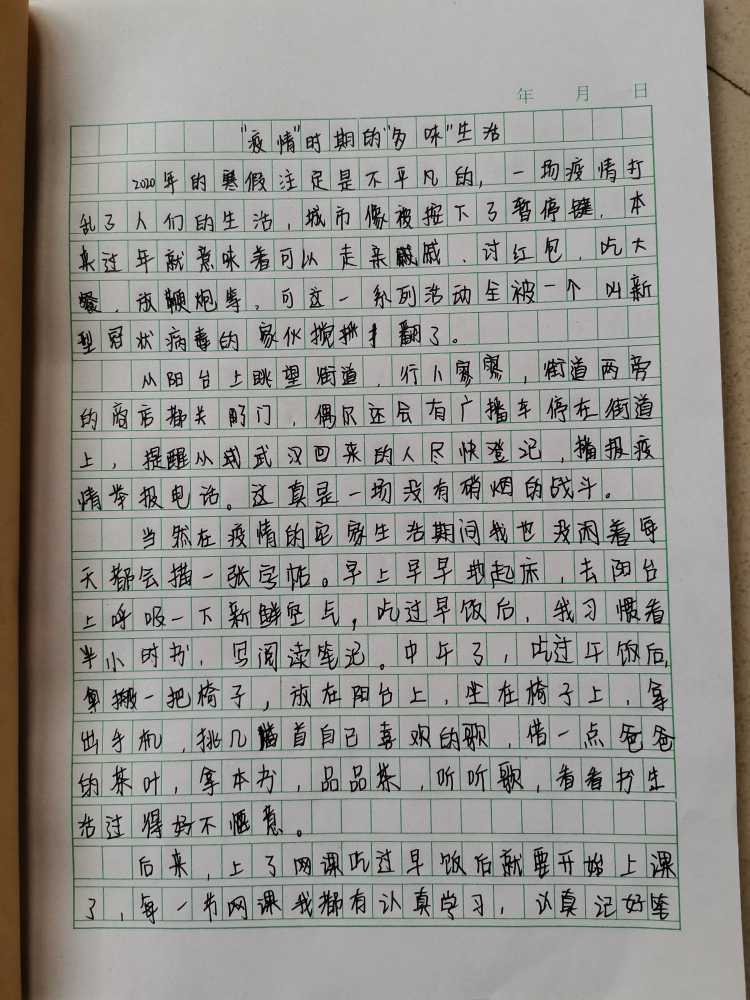 年 月 日
"疫情"时期的"多味"生活
2020年的寒假注定是不平凡的，一场疫情打
乱了人们的生活，城市像被按下了暂停键，本
来过年就意味着可以走亲戚、讨红包、吃大
餐、放鞭炮等，可这一系列活动全被一个叫新
型冠状病毒的家伙搅翻了。
从阳台上眺望街道，行人寥寥，街道两旁
的商店都关了门，偶尔还会有广播车停在街道
上，提醒从武汉回来的人尽快登记，播报疫
情举报电话。这真是一场没有硝烟的战斗。
当然在疫情的宅家生活期间我也没闲着每
天都会描一张字帖。早上早早地起床，去阳台
上呼吸一下新鲜空气，吃过早饭后，我习惯看
半小时书，写阅读笔记。中午了，吃过午饭后，
搬一把椅子，放在阳台上，坐在椅子上，拿
出手机，挑几首自己喜欢的歌，借一点爸爸
的茶叶，拿本书，品品茶，听听歌，看看书生
活过得好不惬意。
后来，上了网课吃过早饭后就要开始上课
了，每一节网课我都有认真学习，认真记好笔